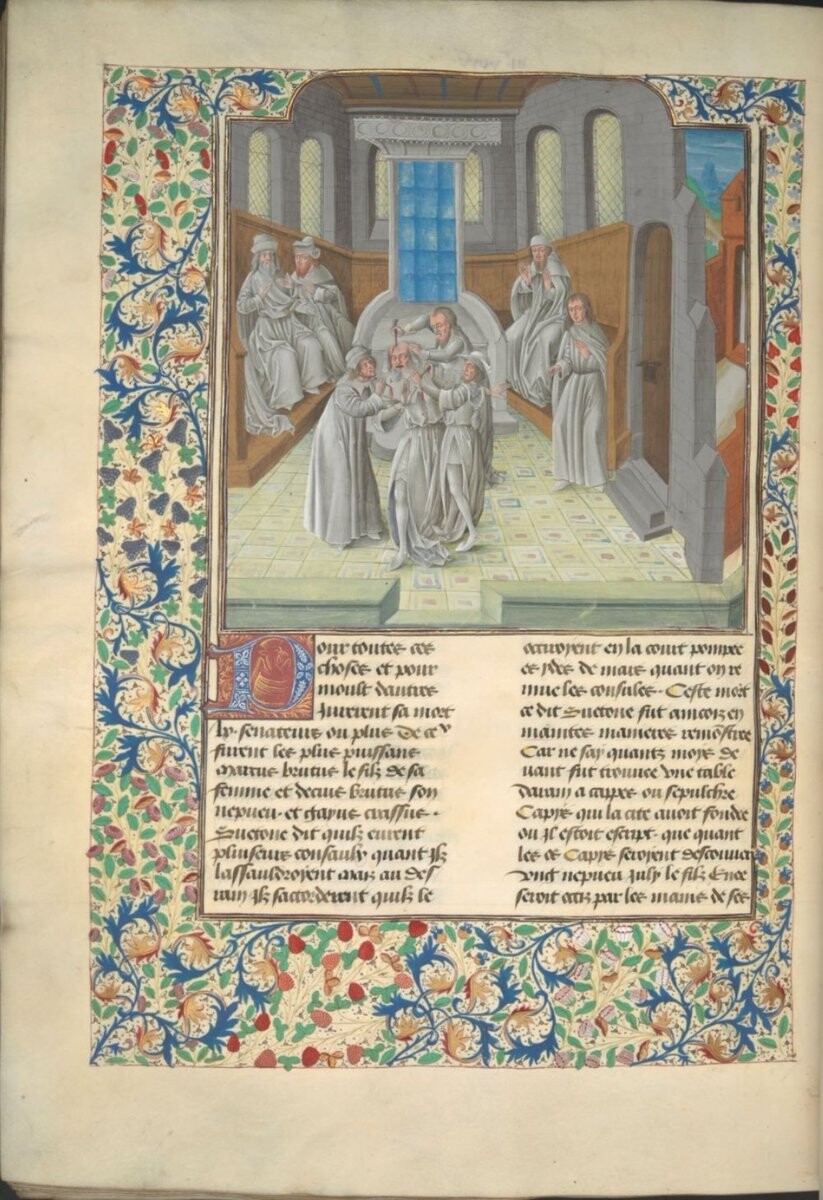 Pour toutes ces
choses et pour
moult dautres
Jurerent sa mort
lx. senateurs ou plus De ceulx
furent les plus puissans
Marcus brutus le filz de sa
femme et decius brutus son
nepueu. et gayus crassus.
Suetone dit quilz eurent
pluiseurs consaulx quant Ilz
lassauldroyent Mais au des
rain Ilz sacorderent quilz le
en la court pompee
es ydes de mars quant on re
mue les consules. Ceste mort
ce dit Suetone fut aincois en
maintes manieres
Car ne say quantz moys de
uant fut trouuee vne table
Darain a cappes ou sepulchre
Capys qui la cite auoit fondee
ou Il estoit escript. que quant
les os Capys seroyent descouuers
nepueu July le filz Enee
seroit occis par les mains de ses